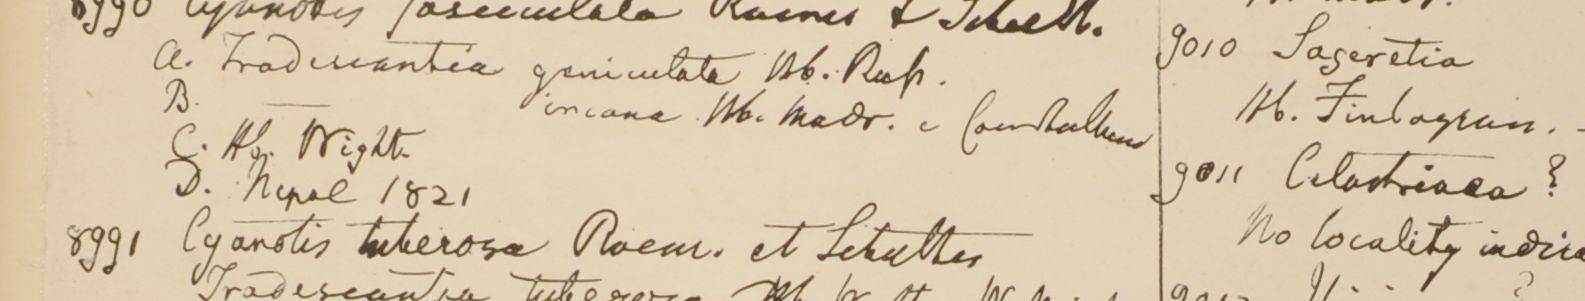 8990 Cyanotis fasciculata Roemer & Schult.
a. Tradescantia geniculata Hb. Russ.
B. — incana Hb. Madr. e
C. Hb. Wight.
D. Nepal 1821
8991 Cyanotis tuberosa Roem. et Schultes
Tradescantia tuberosa Hb.
9010 Sageretia
Hb. Finlayson. -
9011 Celastrinea ?
No locality indica